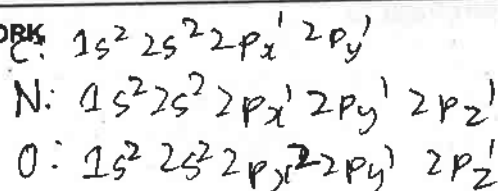 ORK
C: 1s² 2s² 2px¹ 2py¹
N: 1s² 2s² 2px¹ 2py¹ 2pz¹
O: 1s² 2s² 2px² 2py¹ 2pz¹